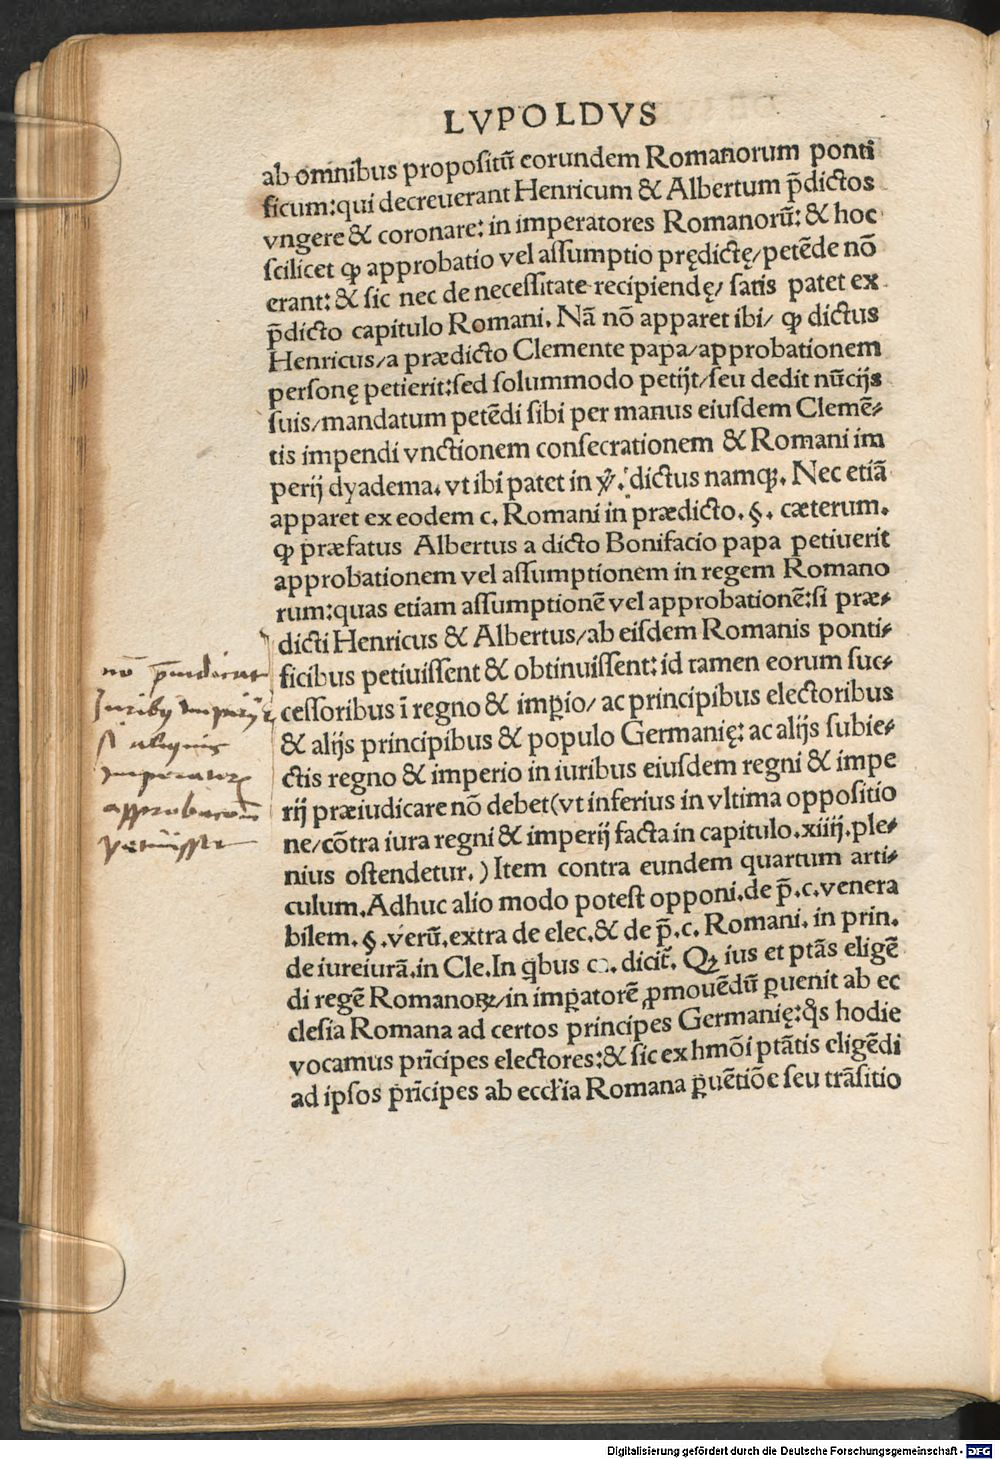 LVPOLDVS
ab omnibus propositū eorundem Romanorum ponti
ficum:qui decreuerant Henricum & Albertum p̄dictos
vngere & coronare: in imperatores Romanorū: & hoc
scilicet ꝙ approbatio vel assumptio prędictę/petēde nō
erant: & sic nec de necessitate recipiendę/ satis patet ex
p̄dicto capitulo Romani. Nā nō apparet ibi/ ꝙ dictus
Henricus/a prædicto Clemente papa/approbationem
personę petierit:sed solummodo petijt/seu dedit nūcijs
suis/mandatum petēdi sibi per manus eiusdem Clemē-
tis impendi vnctionem consecrationem & Romani im
perij dyadema. vt ibi patet in ℣. dictus namq̃. Nec etiā
apparet ex eodem c. Romani in prædicto. §. cæterum.
ꝙ præfatus Albertus a dicto Bonifacio papa petiuerit
approbationem vel assumptionem in regem Romano
rum:quas etiam assumptionē vel approbationē:si præ-
dicti Henricus & Albertus/ab eisdem Romanis ponti-
ficibus petiuissent & obtinuissent: id tamen eorum suc-
cessoribus ī regno & imꝑio/ ac principibus electoribus
& alijs principibus & populo Germanię: ac alijs subie-
ctis regno & imperio in iuribus eiusdem regni & impe
rij præiudicare nō debet(vt inferius in vltima oppositio
ne/cōtra iura regni & imperij facta in capitulo.xiiij.ple-
nius ostendetur.) Item contra eundem quartum arti-
culum.Adhuc alio modo potest opponi.de p̄.c.venera
bilem. §.verū.extra de elec.& de p̄.c. Romani. in prin.
de iureiurā.in Cle.In q̇bus c. dicit̃. Qꝫ ius et ptās eligē
di regē Romanoꝝ/in imꝑatorē ꝓmouēdū ꝑuenit ab ec
clesia Romana ad certos principes Germanię:q̇s hodie
vocamus prīcipes electores:& sic ex hmōi ptātis eligēdi
ad ipsos prīcipes ab ecclīa Romana ꝑuētiōe seu trāsitio
nō p̄iudicat
Juribꝫ Imperij
si aliquis
Imperatoꝝ
approbacōē
petiuisset
Digitalisierung gefördert durch die Deutsche Forschungsgemeinschaft - DFG